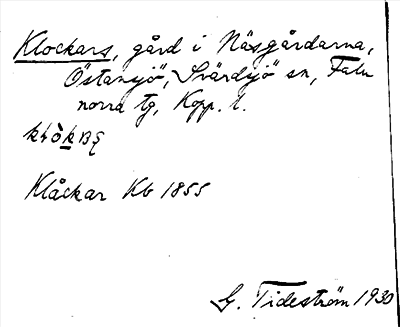 Klockars, gård i Näsgårdarna,
Östansjö, Svärdsjö sn, Falu
norra tg, Kopp. l.
Klåckar Kb 1855
G. Tideström 1930